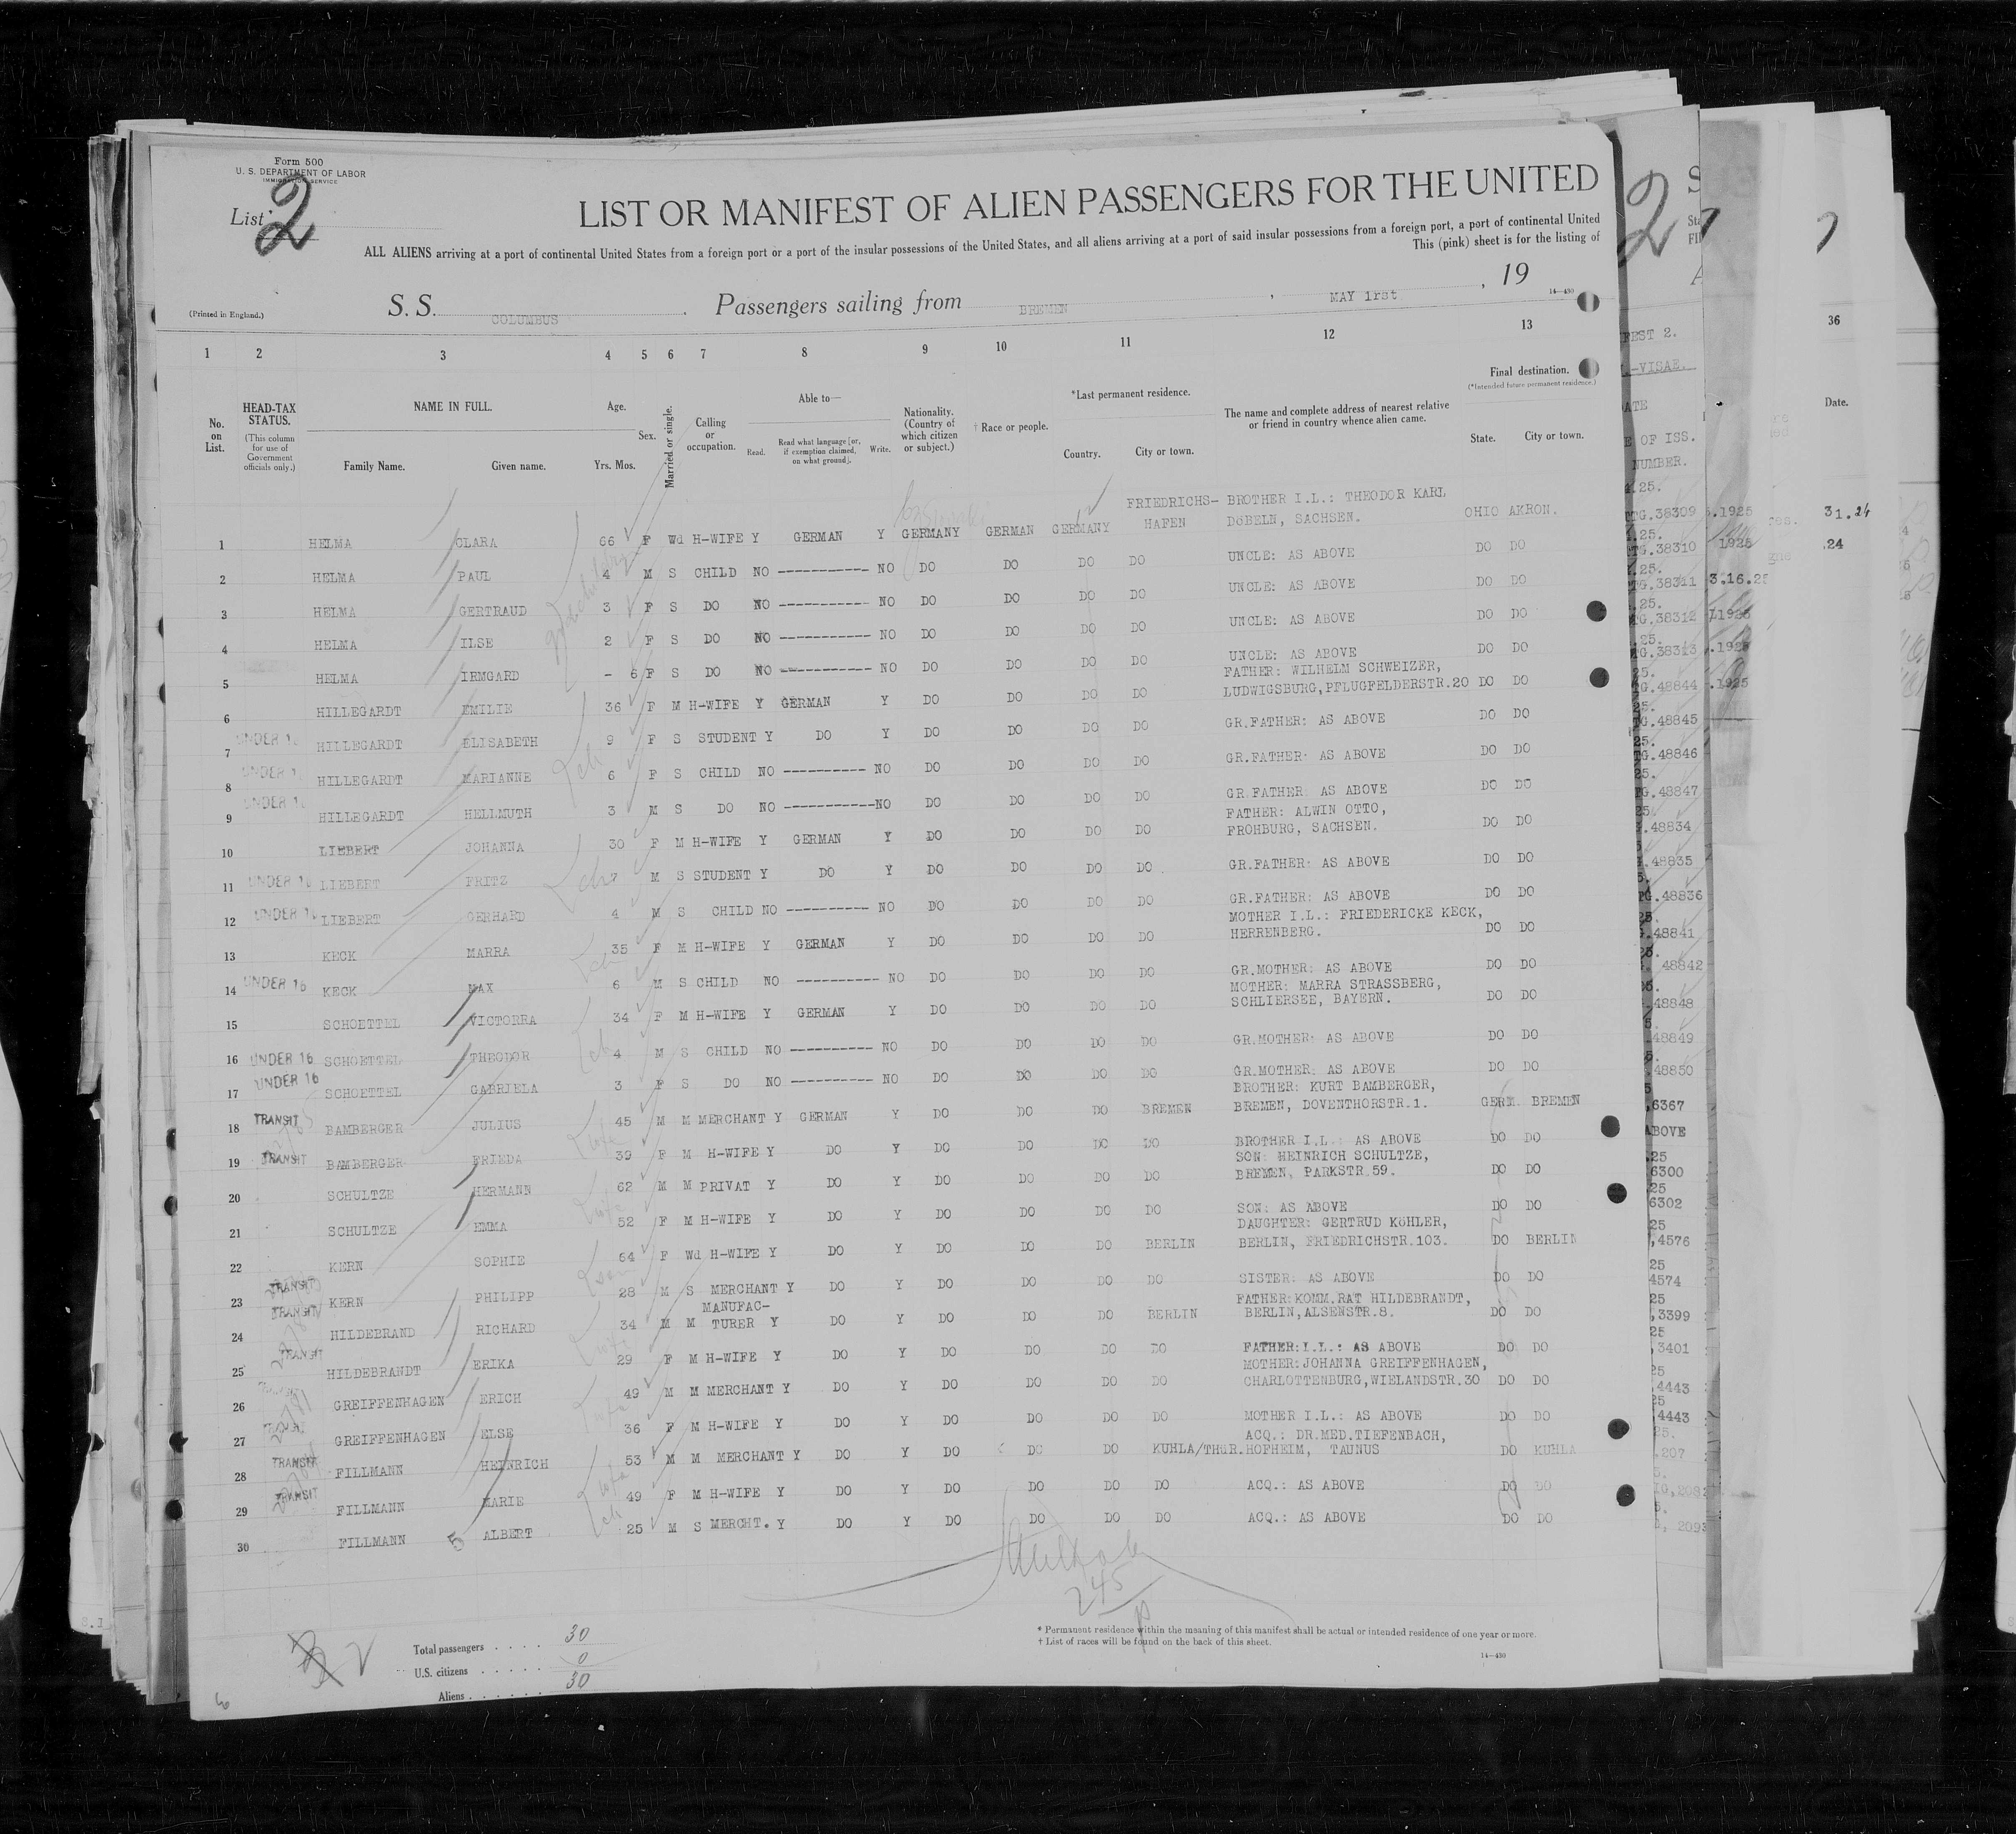 Form 500
U. S. DEPARTMENT OF LABOR
IMMIGRATION SERVICE
List 2
LIST OR MANIFEST OF ALIEN PASSENGERS FOR THE UNITED
ALL ALIENS arriving at a port of continental United States from a foreign port or a port of the insular possessions of the United States, and all aliens arriving at a port of said insular possessions from a foreign port, a port of continental United
This (pink) sheet is for the listing of
(Printed in England.)
S. S. COLUMBUS Passengers sailing from BREMEN , MAY 1rst , 19
14—430
1 2 3 4 5 6 7 8 9 10 11 12 13
No. on List.
HEAD-TAX STATUS.
(This column for use of Government officials only.)
NAME IN FULL.
Family Name. Given name.
Age.
Yrs. Mos.
Sex.
Married or single.
Calling or occupation.
Able to—
Read. Read what language [or, if exemption claimed, on what ground]. Write.
Nationality. (Country of which citizen or subject.)
† Race or people.
*Last permanent residence.
Country. City or town.
The name and complete address of nearest relative or friend in country whence alien came.
Final destination.
(*Intended future permanent residence.)
State. City or town.
FRIEDRICHS- BROTHER I.L.: THEODOR KARL
1 HELMA CLARA 66 F Wd H-WIFE Y GERMAN Y GERMANY GERMAN GERMANY HAFEN DöBELN, SACHSEN. OHIO AKRON.
2 HELMA PAUL 4 M S CHILD NO ---------- NO DO DO DO DO UNCLE: AS ABOVE DO DO
3 HELMA GERTRAUD 3 F S DO NO ---------- NO DO DO DO DO UNCLE: AS ABOVE DO DO
4 HELMA ILSE 2 F S DO NO ---------- NO DO DO DO DO UNCLE: AS ABOVE DO DO
5 HELMA IRMGARD - 6 F S DO NO ---------- NO DO DO DO DO UNCLE: AS ABOVE DO DO
FATHER: WILHELM SCHWEIZER,
6 HILLEGARDT EMILIE 36 F M H-WIFE Y GERMAN Y DO DO DO DO LUDWIGSBURG,PFLUGFELDERSTR.20 DO DO
7 UNDER 16 HILLEGARDT ELISABETH 9 F S STUDENT Y DO Y DO DO DO DO GR.FATHER: AS ABOVE DO DO
8 UNDER 16 HILLEGARDT MARIANNE 6 F S CHILD NO ---------- NO DO DO DO DO GR.FATHER: AS ABOVE DO DO
9 UNDER 16 HILLEGARDT HELLMUTH 3 M S DO NO ---------- NO DO DO DO DO GR.FATHER AS ABOVE DO DO
FATHER: ALWIN OTTO,
10 LIEBERT JOHANNA 30 F M H-WIFE Y GERMAN Y DO DO DO DO FROHBURG, SACHSEN. DO DO
11 UNDER 16 LIEBERT FRITZ 7 M S STUDENT Y DO Y DO DO DO DO GR.FATHER: AS ABOVE DO DO
12 UNDER 16 LIEBERT GERHARD 4 M S CHILD NO ---------- NO DO DO DO DO GR.FATHER: AS ABOVE DO DO
MOTHER I.L.: FRIEDERICKE KECK,
13 KECK MARRA 35 F M H-WIFE Y GERMAN Y DO DO DO DO HERRENBERG. DO DO
14 UNDER 16 KECK MAX 6 M S CHILD NO ---------- NO DO DO DO DO GR.MOTHER: AS ABOVE DO DO
MOTHER: MARRA STRASSBERG,
15 SCHOETTEL VICTORRA 34 F M H-WIFE Y GERMAN Y DO DO DO DO SCHLIERSEE, BAYERN. DO DO
16 UNDER 16 SCHOETTEL THEODOR 4 M S CHILD NO ---------- NO DO DO DO DO GR.MOTHER: AS ABOVE DO DO
17 UNDER 16 SCHOETTEL GABRIELA 3 F S DO NO ---------- NO DO DO DO DO GR.MOTHER: AS ABOVE DO DO
BROTHER: KURT BAMBERGER,
18 TRANSIT BAMBERGER JULIUS 45 M M MERCHANT Y GERMAN Y DO DO DO BREMEN BREMEN, DOVENTHORSTR.1. GERM. BREMEN
19 TRANSIT BAMBERGER FRIEDA 39 F M H-WIFE Y DO Y DO DO DO DO BROTHER I.L.: AS ABOVE DO DO
SON: HEINRICH SCHULTZE,
20 SCHULTZE HERMANN 62 M M PRIVAT Y DO Y DO DO DO DO BREMEN, PARKSTR.59. DO DO
21 SCHULTZE EMMA 52 F M H-WIFE Y DO Y DO DO DO DO SON: AS ABOVE DO DO
DAUGHTER: GERTRUD KöHLER,
22 KERN SOPHIE 64 F Wd H-WIFE Y DO Y DO DO DO BERLIN BERLIN, FRIEDRICHSTR.103. DO BERLIN
23 TRANSIT KERN PHILIPP 28 M S MERCHANT Y DO Y DO DO DO DO SISTER: AS ABOVE DO DO
MANUFAC- FATHER:KOMM.RAT HILDEBRANDT,
24 TRANSIT HILDEBRAND RICHARD 34 M M TURER Y DO Y DO DO DO BERLIN BERLIN,ALSENSTR.8. DO DO
25 TRANSIT HILDEBRANDT ERIKA 29 F M H-WIFE Y DO Y DO DO DO DO FATHER:I.L.: AS ABOVE DO DO
MOTHER:JOHANNA GREIFFENHAGEN,
26 GREIFFENHAGEN ERICH 49 M M MERCHANT Y DO Y DO DO DO DO CHARLOTTENBURG,WIELANDSTR.30 DO DO
27 GREIFFENHAGEN ELSE 36 F M H-WIFE Y DO Y DO DO DO DO MOTHER I.L.: AS ABOVE DO DO
ACQ.: DR.MED.TIEFENBACH,
28 TRANSIT FILLMANN HEINRICH 53 M M MERCHANT Y DO Y DO DO DO KUHLA/THüR. HOFHEIM, TAUNUS DO KUHLA
29 TRANSIT FILLMANN MARIE 49 F M H-WIFE Y DO Y DO DO DO DO ACQ.: AS ABOVE DO DO
30 FILLMANN 5 ALBERT 25 M S MERCHT. Y DO Y DO DO DO DO ACQ.: AS ABOVE DO DO
245
Total passengers . . . . 30
U.S. citizens . . . . . 0
Aliens . . . . . . 30
* Permanent residence within the meaning of this manifest shall be actual or intended residence of one year or more.
† List of races will be found on the back of this sheet.
14—430
2
36
-VISAE.
E OF ISS.
NUMBER.
Date.
.38309
.38310
.38311
.38312
.38313
.48844
.48845
.48846
.48847
.48834
.48835
.48836
.48841
48842
.48848
48849
48850
6367
ABOVE
6300
6302
4576
4574
3399
3401
4443
4443
207